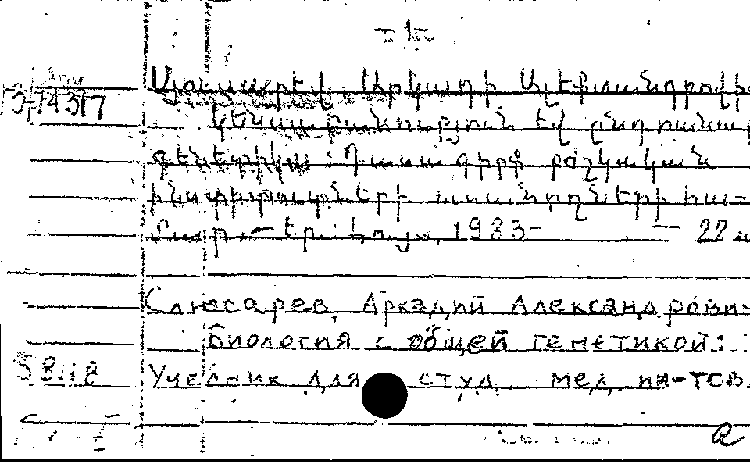 Սլյուսարև, Արկադի Ալեքսանդրովի
Կենսաբանություն եվ ընդհանուր
գենետիկա: Դասագիրք բժշկական
ինստիտուտների ուսանողների հա-
մար.- Եր.: Լույս, 1983-
Слюсарев, Аркадий Александрови
Биология с общей генетикой:
Учебник для студ. мед. ин-тов.